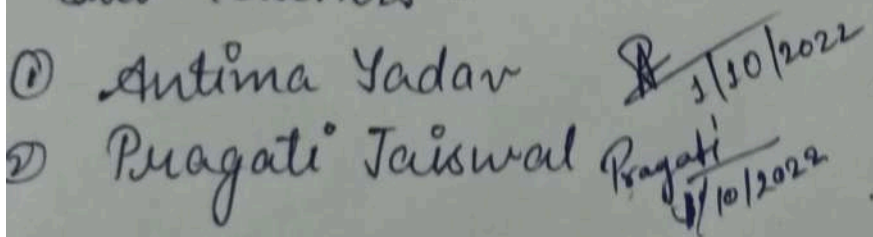 ① Antima Yadav 1/10/2022
② Pragati Jaiswal Pragati
1/10/2022